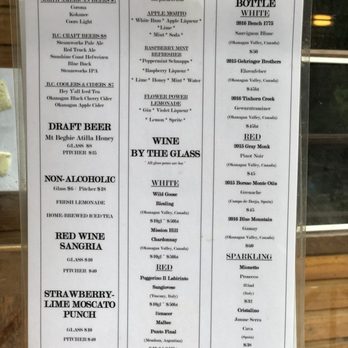 Corona
Kokanee
Coors Light
B.C. CRAFT BEERS $8
Steamworks Pale Ale
Red Truck
Sunshine Coast Hefeweizen
Blue Buck
Steamworks IPA
B.C. COOLERS & CIDERS $7
Hey Y'all Iced Tea
Okanagan Black Cherry Cider
Okanagan Apple Cider
DRAFT BEER
Mt Begbie Attila Honey
GLASS $8
PITCHER
NON-ALCOHOLIC
Glass $6 - Pitcher $18
FRESH LEMONADE
HOME-BREWED ICED TEA
RED WINE
SANGRIA
GLASS
PITCHER $40
STRAWBERRY-
LIME MOSCATO
PUNCH
GLASS
PITCHER $40
APPLE MOJITO
* White Rum * Apple Liqueur *
* Lime *
* Mint * Soda *
RASPBERRY MINT
REFRESHER
* Peppermint Schnapps *
* Raspberry Liqueur *
Lime * Honey * Mint * Water
FLOWER POWER
LEMONADE
* Gin * Violet Liqueur *
* Lemon * Sprite *
WINE
BY THE GLASS
All glass pours are 6oz
WHITE
Wild Goose
Riesling
(Okanagan Valley, Canada)
Mission Hill
Chardonnay
(Okanagan Valley, Canada)
RED
Poggerino Il Labirinto
Sangiovese
(Tuscany, Italy)
Benacer
Malbec
Punto Final
(Mendoza, Argentina)
BOTTLE
WHITE
2016 Bench 1775
Sauvignon Blanc
(Okanagan Valley, Canada)
2015 Gehringer Brothers
Ehrenfelser
(Okanagan Valley, Canada)
2016 Tinhorn Creek
Gewurztraminer
(Okanagan Valley, Canada)
RED
2015 Gray Monk
Pinot Noir
(Okanagan Valley, Canada)
$45
2015 Borsao Monte Oita
Grenache
(Campo de Borja, Spain)
$40
2016 Blue Mountain
Gamay
(Okanagan Valley, Canada)
SPARKLING
Mionetto
Prosecco
(Italy)
Cristalino
Jaume Serra
Cava
(Spain)